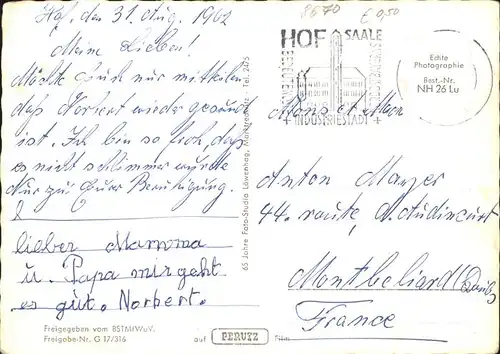 Hof, den 31. Aug. 1962
Meine Lieben!
Möchte Euch nur mitteilen
daß Norbert wieder gesund
ist. Ich bin so froh, daß
es nicht schlimmer wurde
Nur zu Eurer Beruhigung.
lieber Mamma
u. Papa mir geht
es gut. Norbert.
Freigegeben vom BSTMfWuV.
Freigabe-Nr. G 17/316
auf PERUTZ Film
65 Jahre Foto-Studio Löwenhag, Marktredwitz - Tel. 2475
8670
€ 0,50
HOF SAALE
BEDEUTENDE
INDUSTRIESTADT
Echte
Photographie
Best.-Nr.
NH 26 Lu
Mons et Mme
Anton Mayer
44. route, d'Audincourt
Montbeliard (Doubs)
France